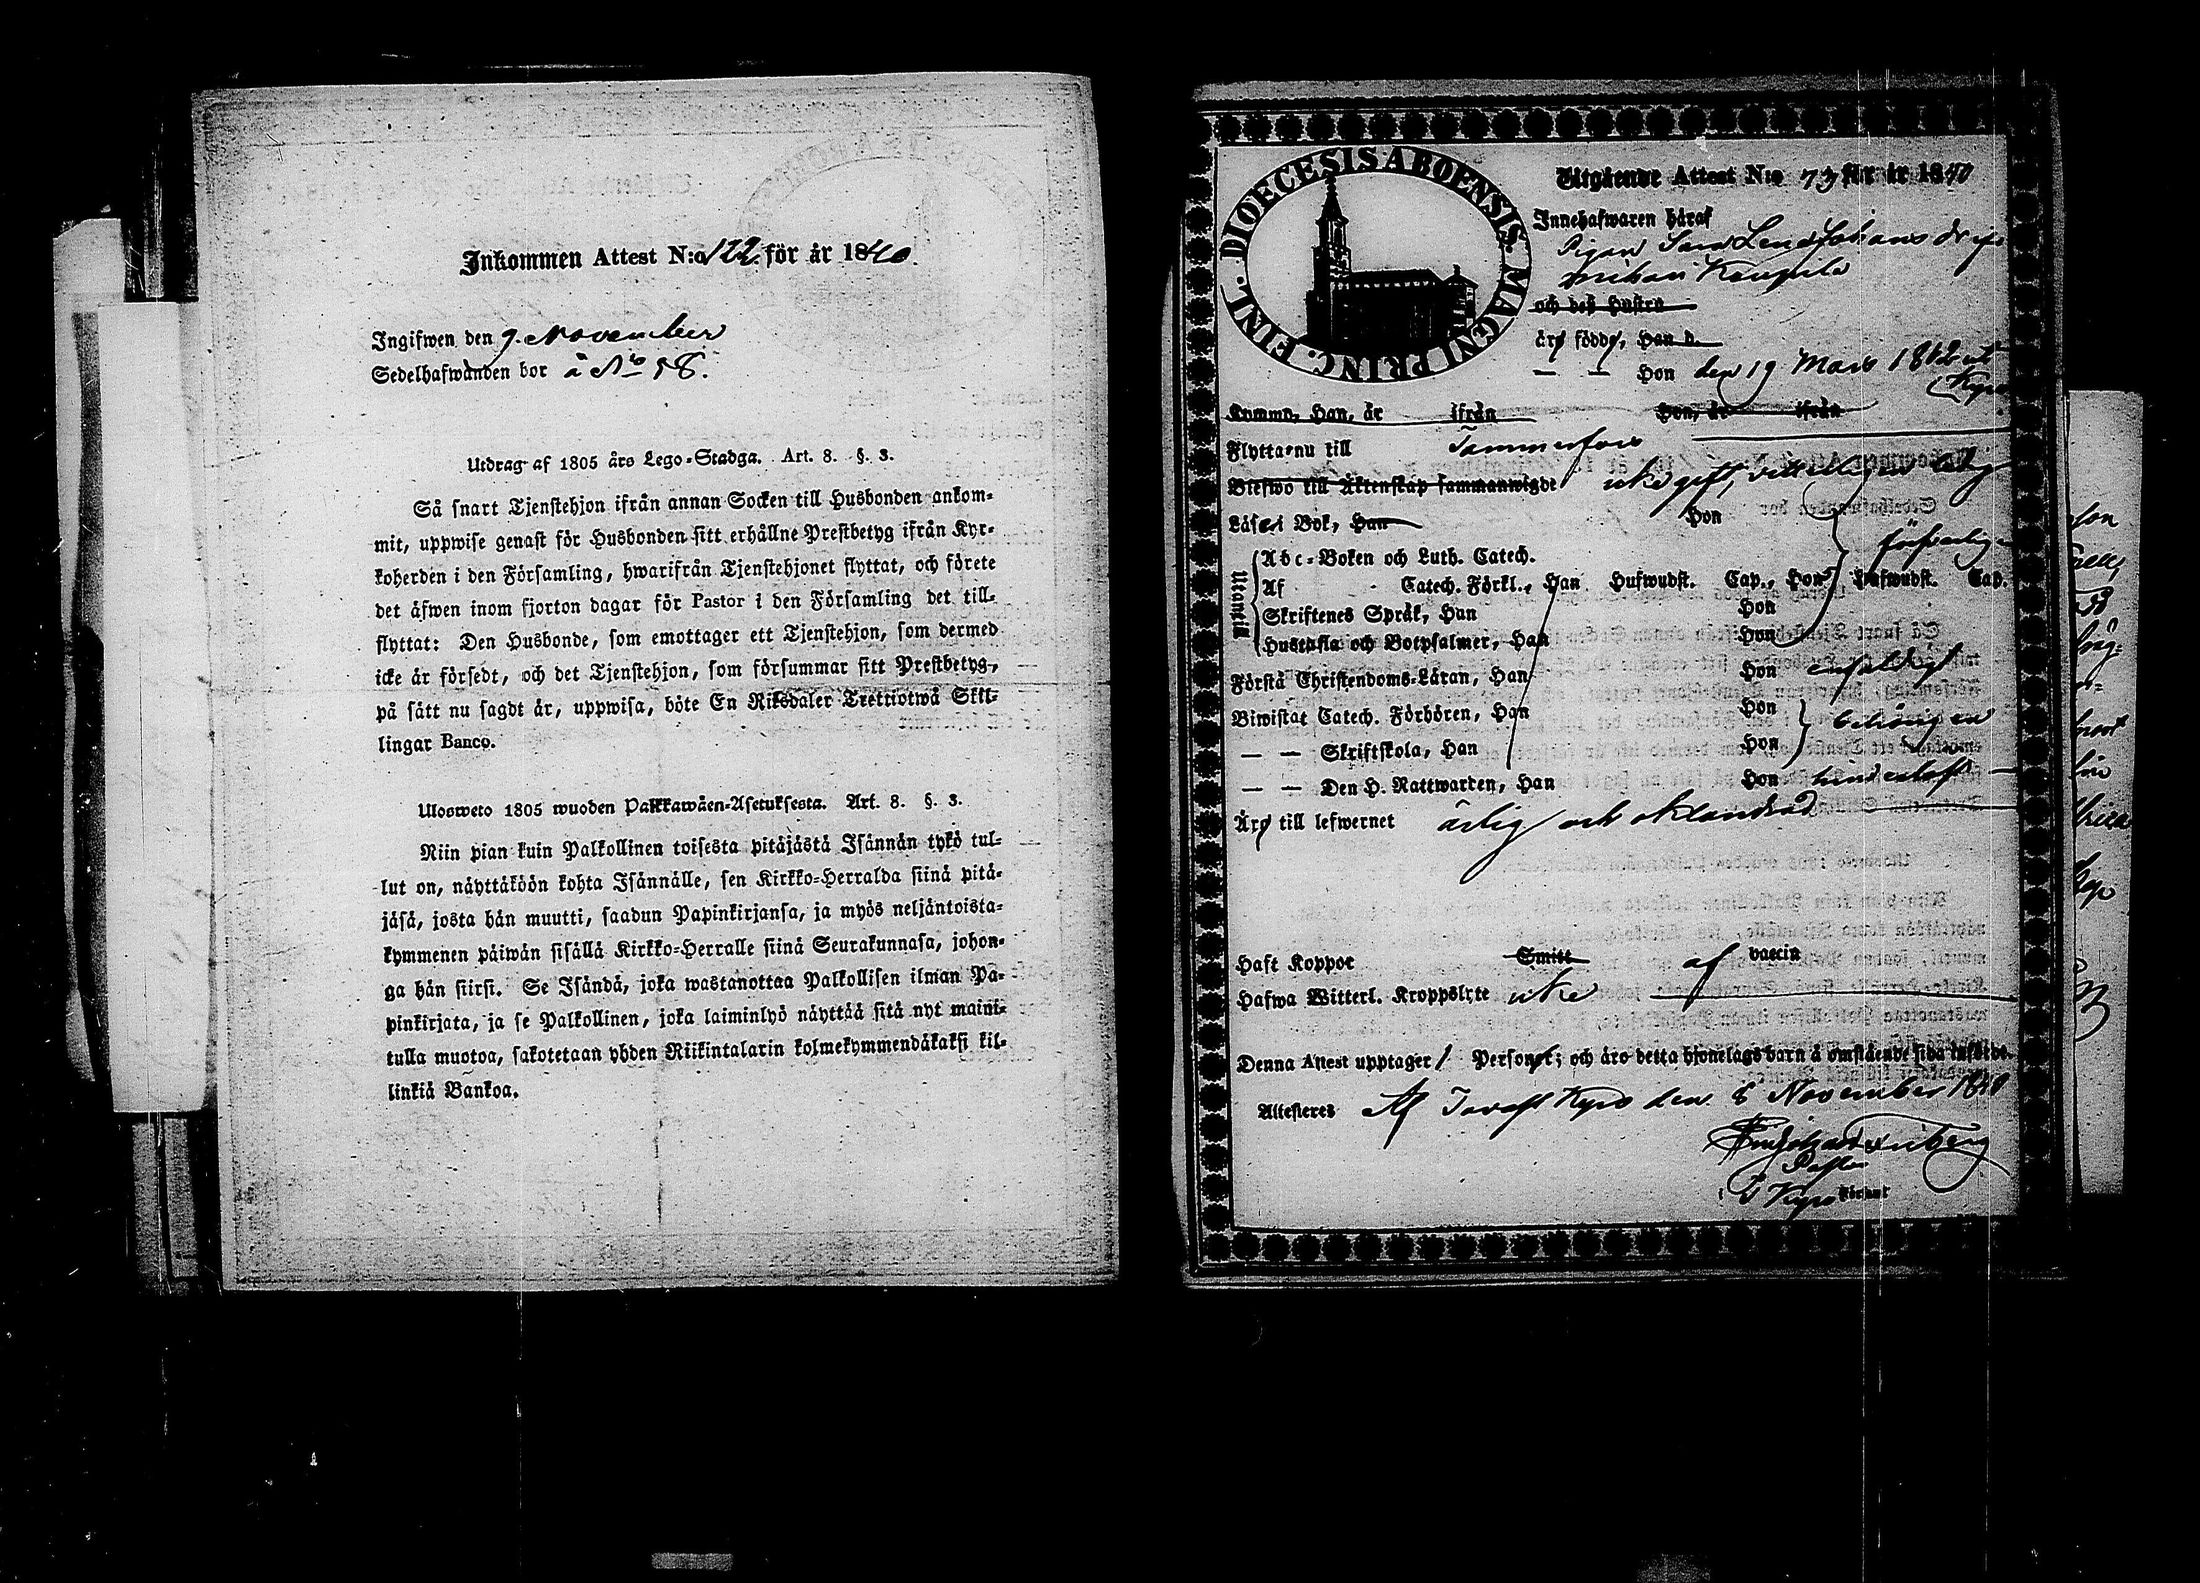 Inkommen Attest N:o 122. för år 1840.
Ingifwen den 9. November
Sedelhafwanden bor å No 58.
Utdrag af 1805 års Lego-Stadga. Art. 8. §. 3.
Så snart Tjenstehjon ifrån annan Socken till Husbonden ankom-
mit, uppwise genast för Husbonden sitt erhållne Prestbetyg ifrån Kyr-
koherden i den Församling, hwarifrån Tjenstehjonet flyttat, och förete
det äfwen inom fjorton dagar för Pastor i den Församling det till-
flyttat: Den Husbonde, som emottager ett Tjenstehjon, som dermed
icke är försedt, och det Tjenstehjon, som försummar sitt Prestbetyg,
på sätt nu sagdt är, uppwisa, böte En Riksdaler Trettiotwå Skil-
lingar Banco.
Ulosweto 1805 wuoden Palkkawäen-Asetuksesta. Art. 8. §. 3.
Niin pian kuin Palkollinen toisesta pitäjästä Isännän tykö tul-
lut on, näyttäköön kohta Isännälle, sen Kirkko-Herralda siinä pitä-
jäsä, josta hän muutti, saadun Papinkirjansa, ja myös neljäntoista-
kymmenen päiwän sisällä Kirkko-Herralle siinä Seurakunnasa, johon-
ga hän siirsi. Se Isändä, joka wastanottaa Palkollisen ilman Pa-
pinkirjata, ja se Palkollinen, joka laiminlyö näyttää sitä nyt maini-
tulla muotoa, sakotetaan yhden Riikintalarin kolmekymmendäkaksi kil-
linkiä Bankoa.
DIOECESIS ABOENSIS MAGNI PRINC. FINL.
Utgående Attest N:o 73 för år 1840
Innehafwaren häraf
Pigan Lena Johans dr
och deß Hustru
äro födde, Han d.
— — Hon den 19 Mars 1812
Kyro
Kommo, Han, år ifrån Hon, år ifrån
Flytta nu till Tammerfors
Blefwo till Äktenskap sammanwigde icke gift, ledig
Läse i Bok, Han Hon
Utantill
Abc-Boken och Luth. Catech. försvarlig
Af Catech. Förkl., Han Hufwudst. Cap., Hon Hufwudst. Cap.
Skriftenes Språk, Han Hon
Hustafla och Botpsalmer, Han Hon
Förstå Christendoms-Läran, Han Hon enfaldigt
Biwistat Catech. Förhören, Han Hon behörigen
— — Skriftskola, Han Hon
— — Den H. Nattwarten, Han Hon
Äro till lefwernet ärlig och oklandrad
Haft Koppor Smitt af vaccin
Hafwa Witterl. Kroppslyte icke
Denna Attest upptager 1 Person; och äro detta hjonelags barn å omstående sida införde.
Attesteres Af Tavast Kyro den 8 November 1840
Pastor
i Kyro